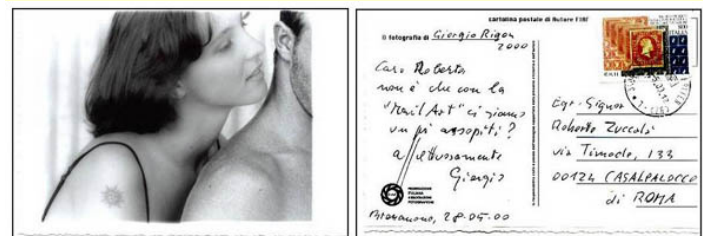 cartolina postale di Autore FIAF
© fotografia di Giorgio Rigon
2000
Caro Roberto
non è che con la
"Mail Art" ci siamo
un pò assopiti?
affettuosamente
Giorgio
Bressanone, 28-05-00
ITALIA
Egr. Signor
Roberto Zuccalà
via Timocle, 133
00124 CASALPALOCCO
di ROMA